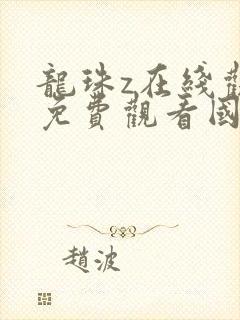 龍珠z在綫觀
免費觀看國
趙波